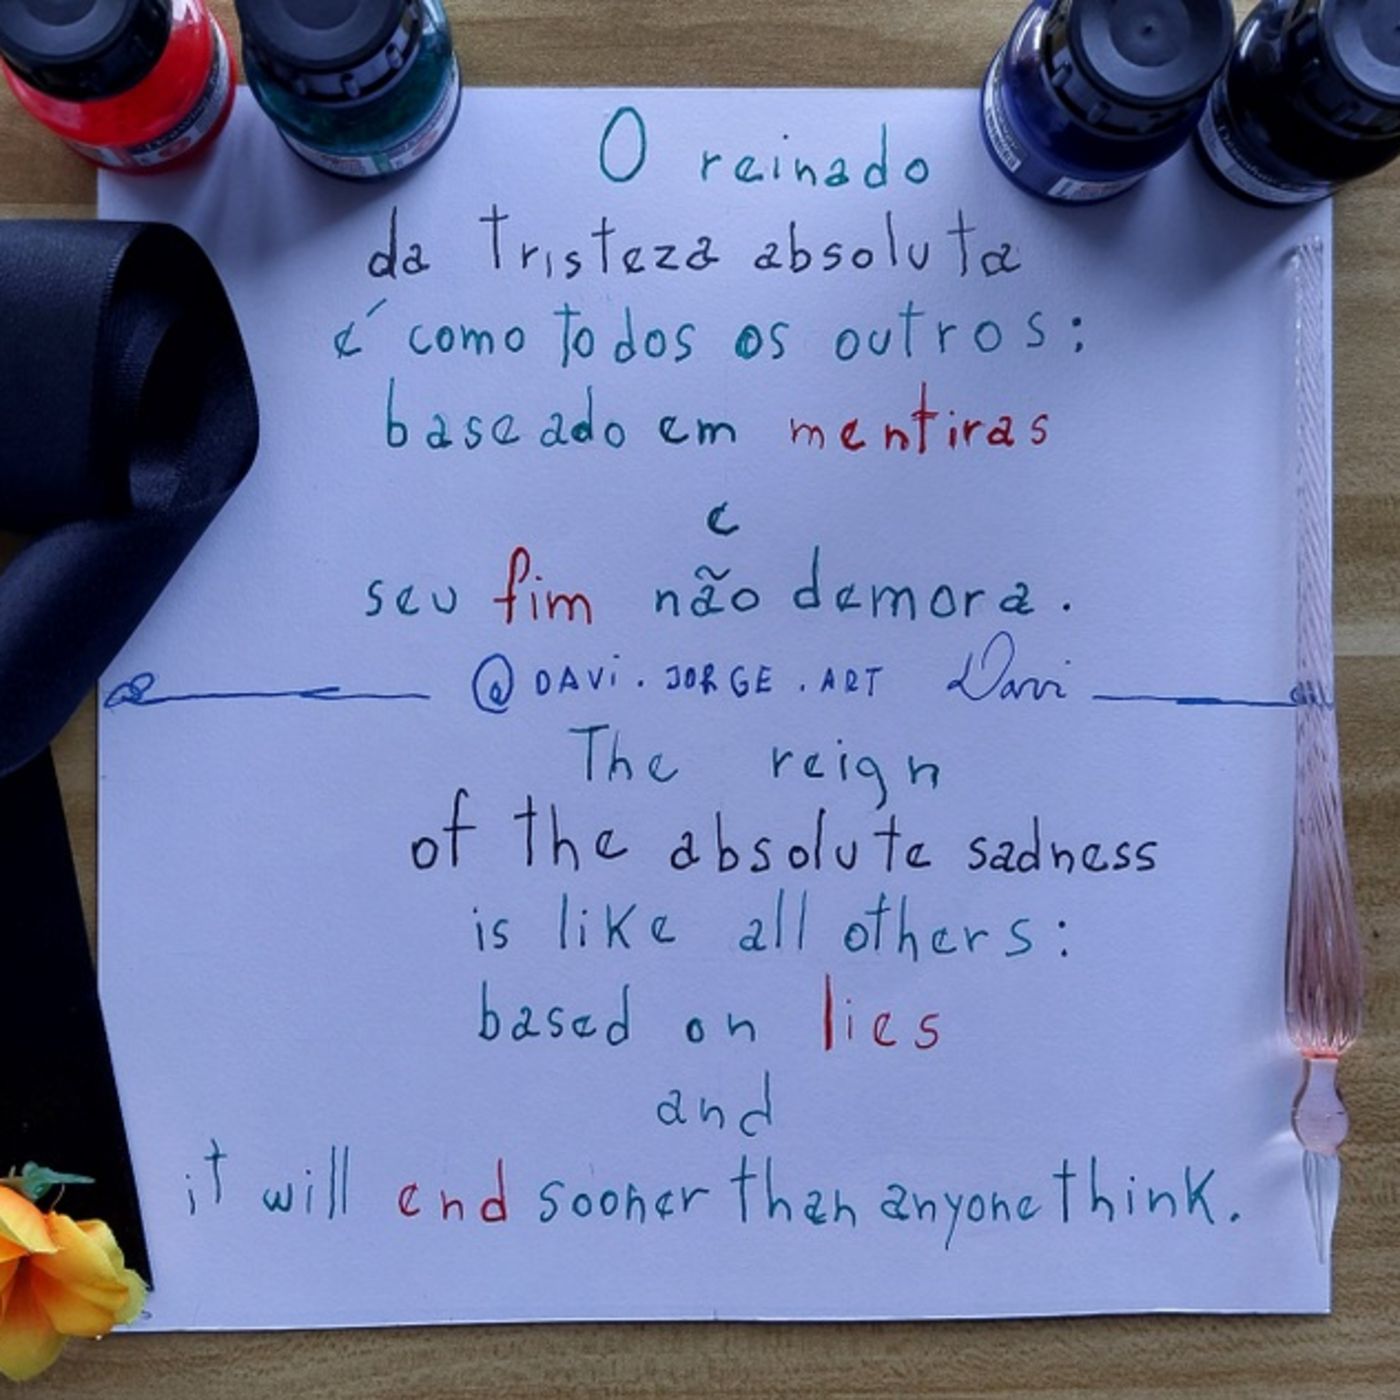 O reinado
da Tristeza absoluta
é como todos os outros:
baseado em mentiras
e
seu fim não demora.
@DAVi.JORGE.ART Davi
The reign
of the absolute sadness
is like all others:
based on lies
and
it will end sooner than anyone think.